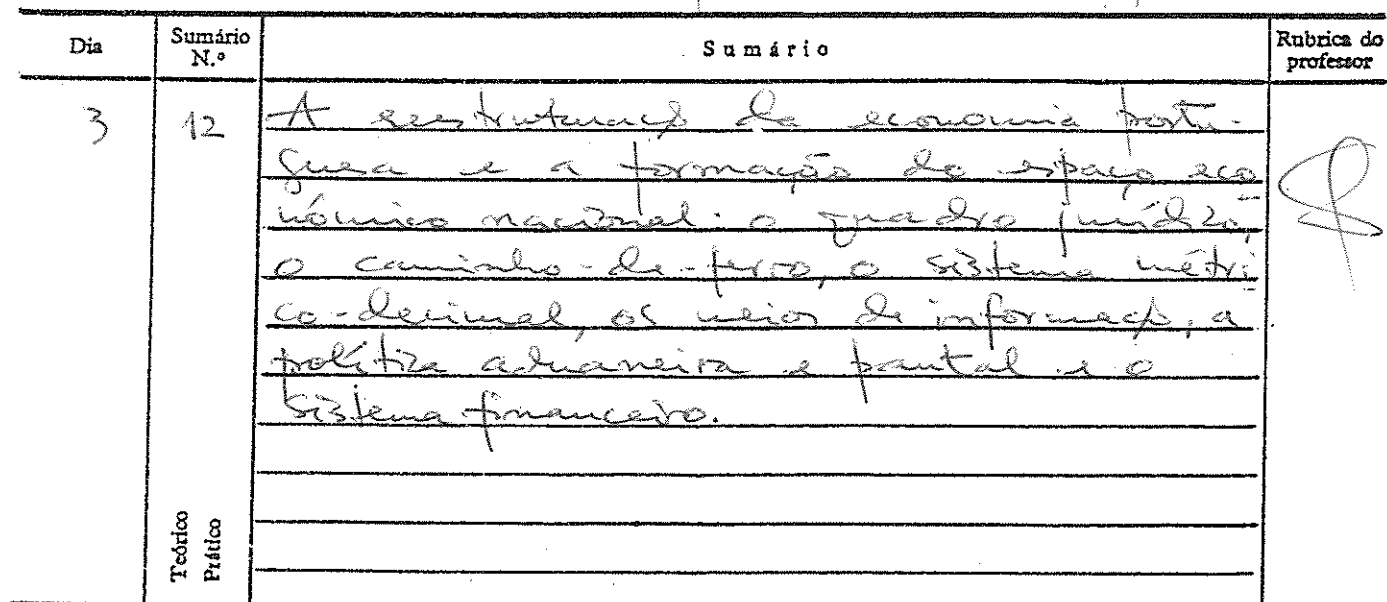 Dia
Sumário N.º
Sumário
Rubrica do professor
3
12
A reestruturação da economia portu-
guesa e a formação do espaço eco
nómico nacional: o quadro jurídico,
o caminho-de-ferro, o sistema métri
co-decimal, os meios de informação, a
política aduaneira e pautal e o
sistema financeiro.
Teórico
Prático